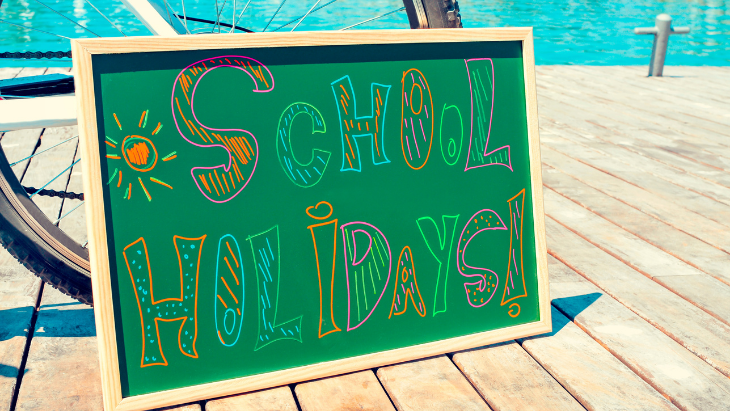 SCHOOL
HOLiDAYS!